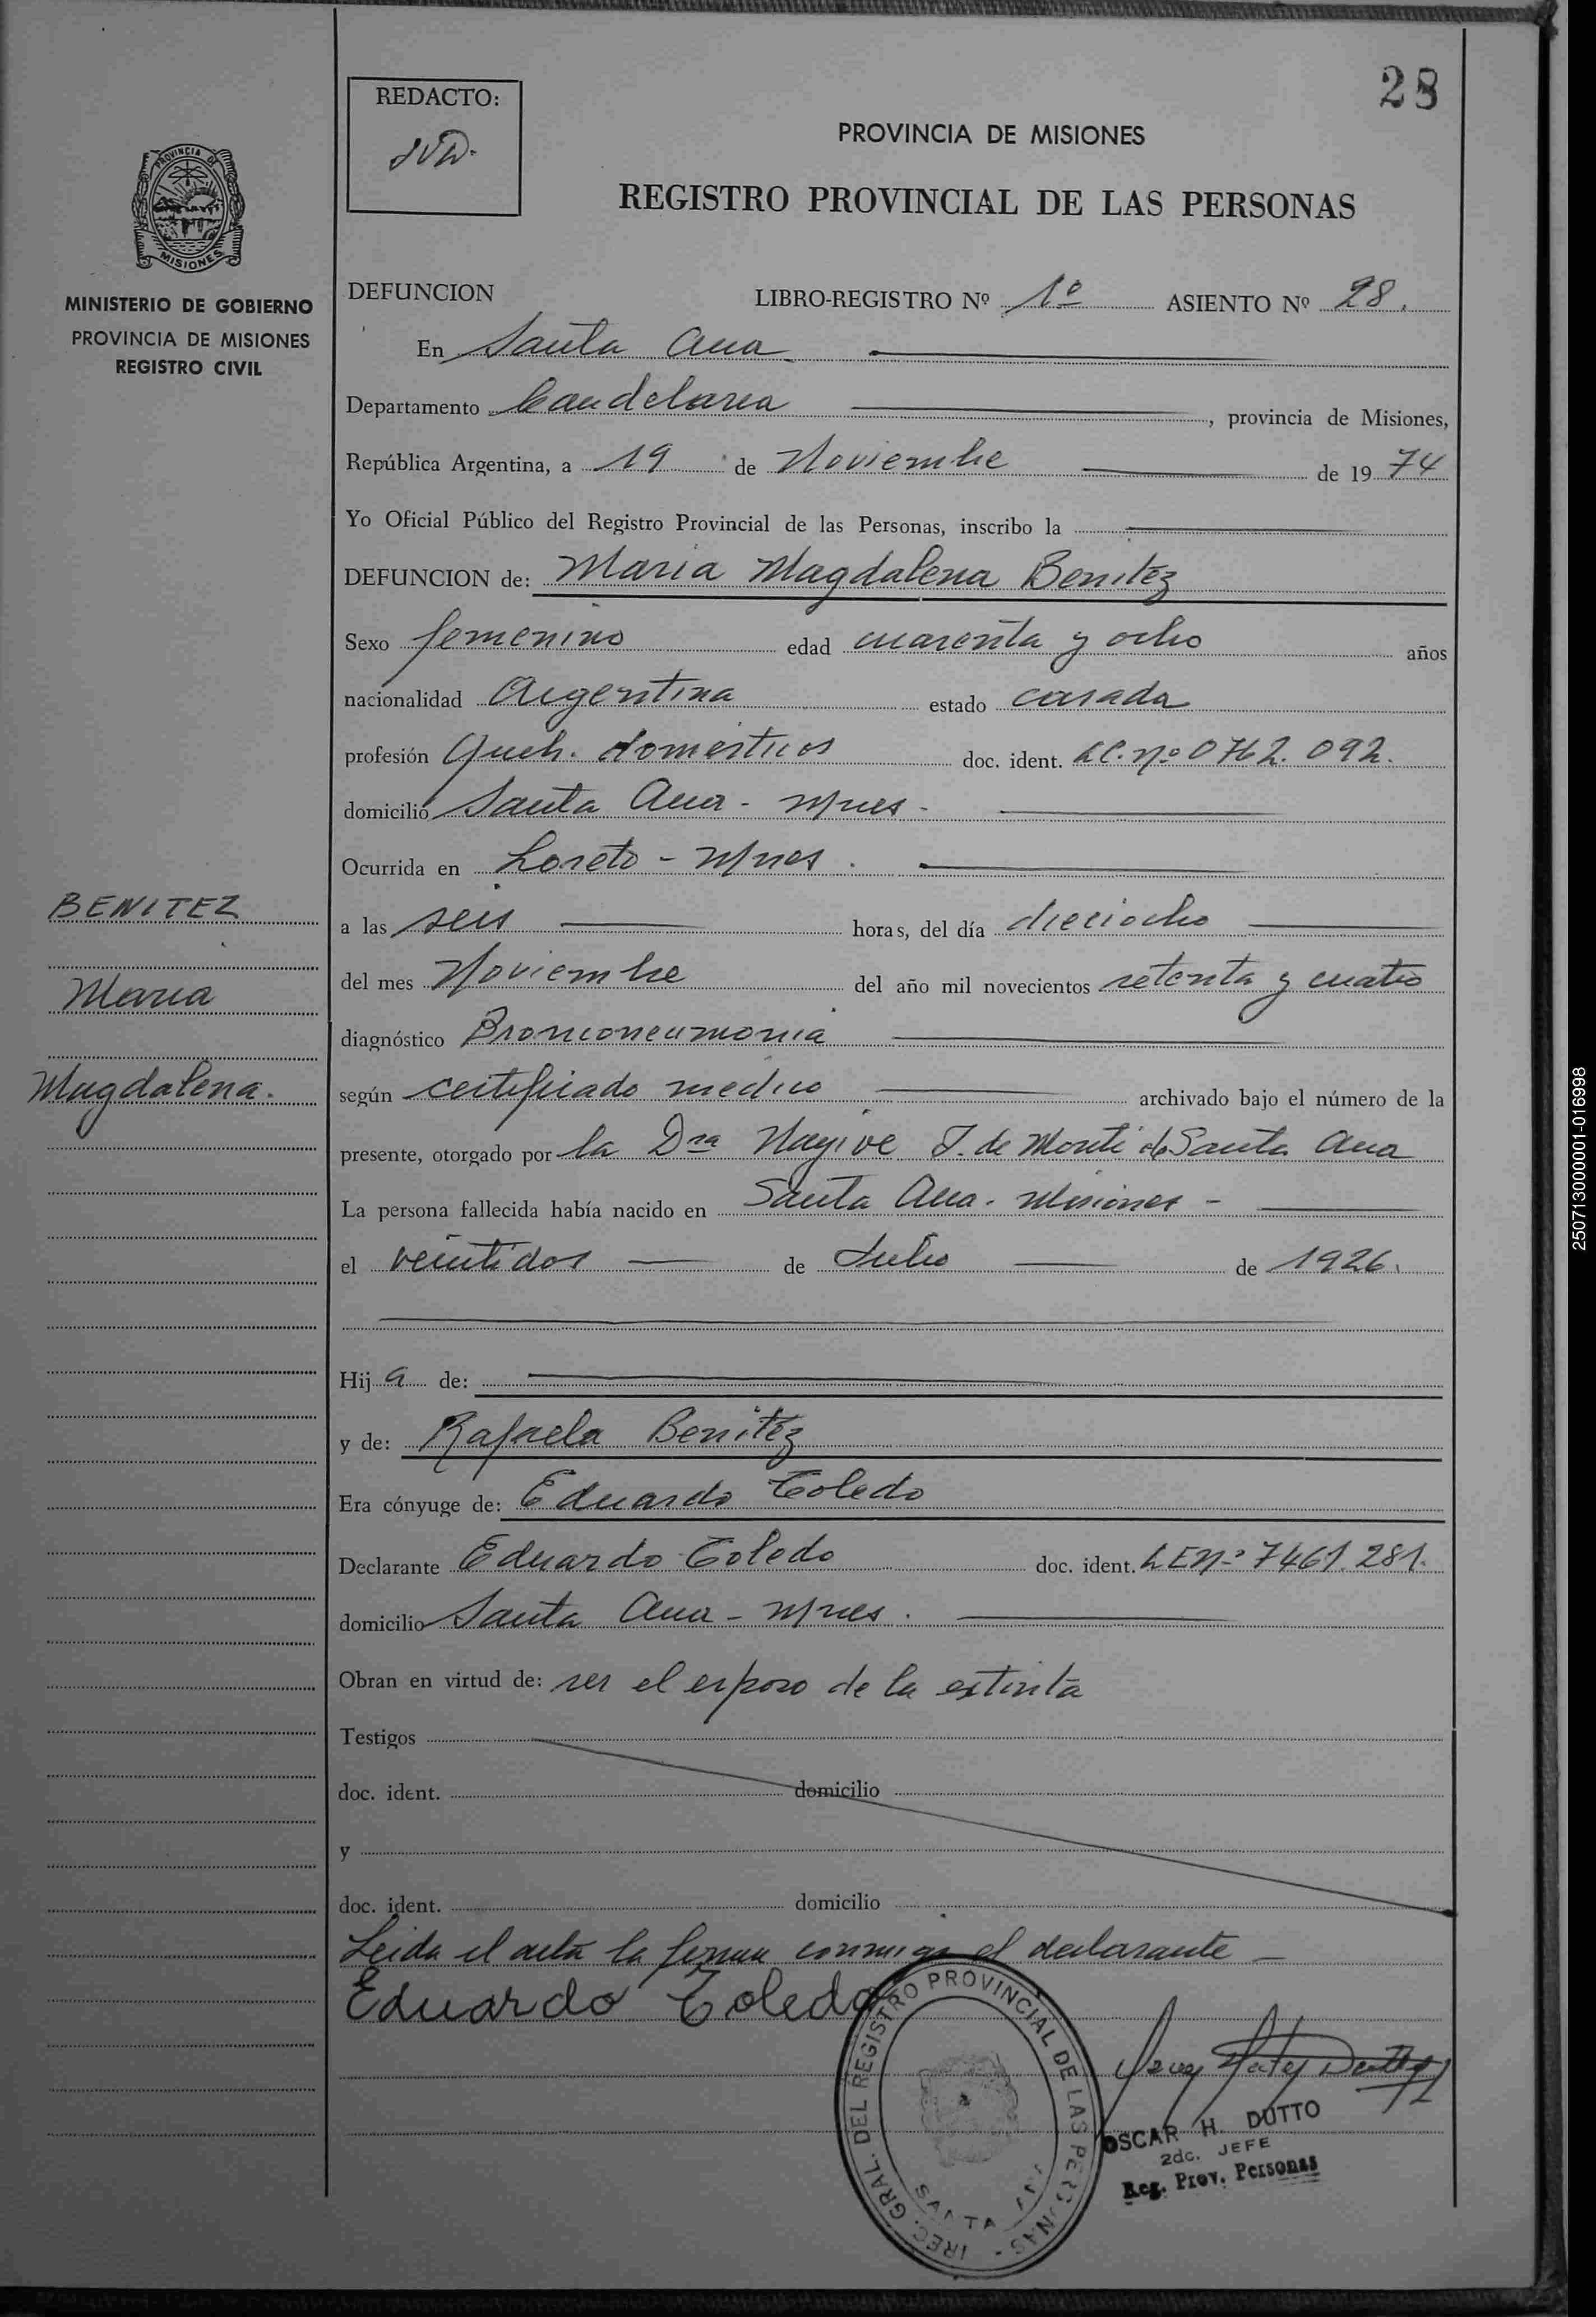 28
REDACTO:
PROVINCIA DE MISIONES
REGISTRO PROVINCIAL DE LAS PERSONAS
PROVINCIA DE
MISIONES
MINISTERIO DE GOBIERNO
PROVINCIA DE MISIONES
REGISTRO CIVIL
DEFUNCION LIBRO-REGISTRO Nº 1º ASIENTO Nº 28.
En Santa Ana
Departamento Candelaria, provincia de Misiones,
República Argentina, a 19 de Noviembre de 1974
Yo Oficial Público del Registro Provincial de las Personas, inscribo la
DEFUNCION de: Maria Magdalena Benitez
Sexo femenino edad cuarenta y ocho años
nacionalidad Argentina estado casada
profesión Queh. domesticos doc. ident. LC. nº 0762.092.
domicilio Santa Ana - Mnes -
Ocurrida en Loreto - Mnes.
BENITEZ
a las seis horas, del día dieciocho
del mes Noviembre del año mil novecientos setenta y cuatro
Maria
diagnóstico Bronconeumonia
Magdalena.
según certificado medico archivado bajo el número de la
presente, otorgado por la Dra Nayive J. de Monti de Santa Ana
La persona fallecida había nacido en Santa Ana - Misiones -
el veintidos de Julio de 1926.
Hija de:
y de: Rafaela Benitez
Era cónyuge de: Eduardo Toledo
Declarante Eduardo Toledo doc. ident. LE nº 7461.281.
domicilio Santa Ana - Mnes.
Obran en virtud de: ser el esposo de la extinta
Testigos
doc. ident. domicilio
y
doc. ident. domicilio
Leida el acta la firma conmigo el declarante -
Eduardo Toledo
IREC. GRAL. DEL REGISTRO PROVINCIAL DE LAS PERSONAS -
SANTA
OSCAR H. DUTTO
2do. JEFE
Reg. Prov. Personas
250713000001-016998